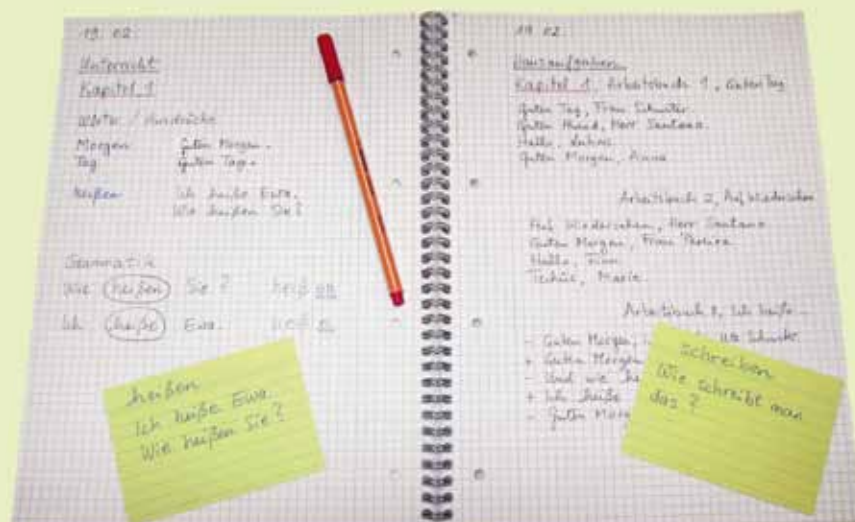 19. 02.
Unterricht
Kapitel 1
Wörter / Ausdrücke
Morgen Guten Morgen.
Tag Guten Tag.
heißen Ich heiße Ewa.
Wie heißen Sie?
Grammatik
Wie heißen Sie? heiß en
Ich heiße Ewa. heiß e
heißen
Ich heiße Ewa.
Wie heißen Sie?
19. 02.
Hausaufgaben
Kapitel 1, Arbeitsbuch 1, Guten Tag
Guten Tag, Frau
Guten Abend, Herr Santana.
Hallo,
Guten Morgen, Anna.
Arbeitsbuch 2, Auf Wiedersehen
Auf Wiedersehen, Herr Santana
Guten Morgen, Frau
Hallo,
Tschüs, Marie.
Ich heiße
- Guten Morgen,
+ Guten Morgen
- Und wie
+ Ich heiße
- Guten
schreiben
Wie schreibt man
das?